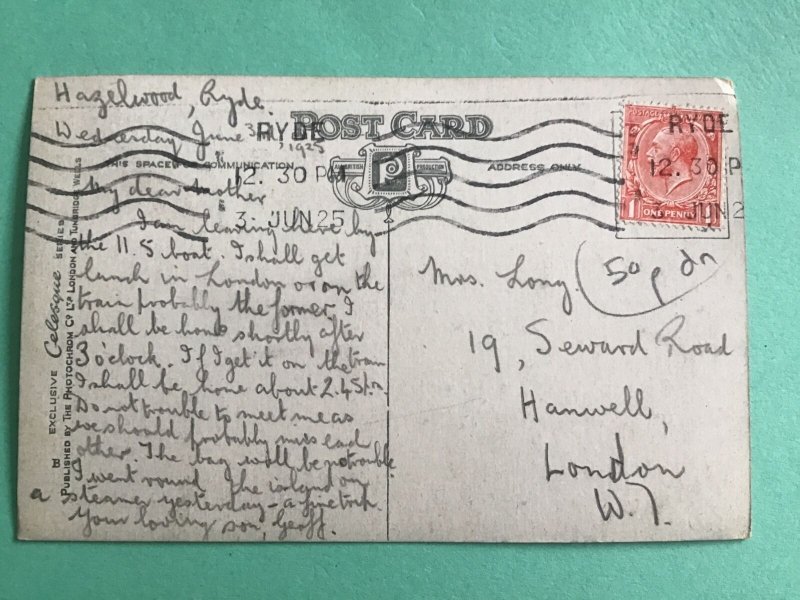 Hazelwood, Ryde.
Wednesday June 3rd, 1925
POST CARD
THIS SPACE FOR COMMUNICATION
ADDRESS ONLY
BRITISH
PRODUCTION
P
RYDE
12. 30 PM
3 JUN 25
RYDE
12. 30 P
JUN 2
POSTAGE
1
ONE PENNY
My dear Mother
I am leaving here by
the 11.5 boat. I shall get
lunch in London or on the
train probably the former. I
shall be home shortly after
3 o'clock. If I get it on the train
I shall be home about 2.45 p.m.
Do not trouble to meet me as
we should probably miss each
other. The bag will be no trouble.
I went round the island on
a steamer yesterday - a fine trip.
Your loving son, Geoff.
Mrs. Long.
19, Seward Road
Hanwell,
London
W.7.
50p
EXCLUSIVE Celesque SERIES
PUBLISHED BY THE PHOTOCHROM CO LTD LONDON AND TUNBRIDGE WELLS